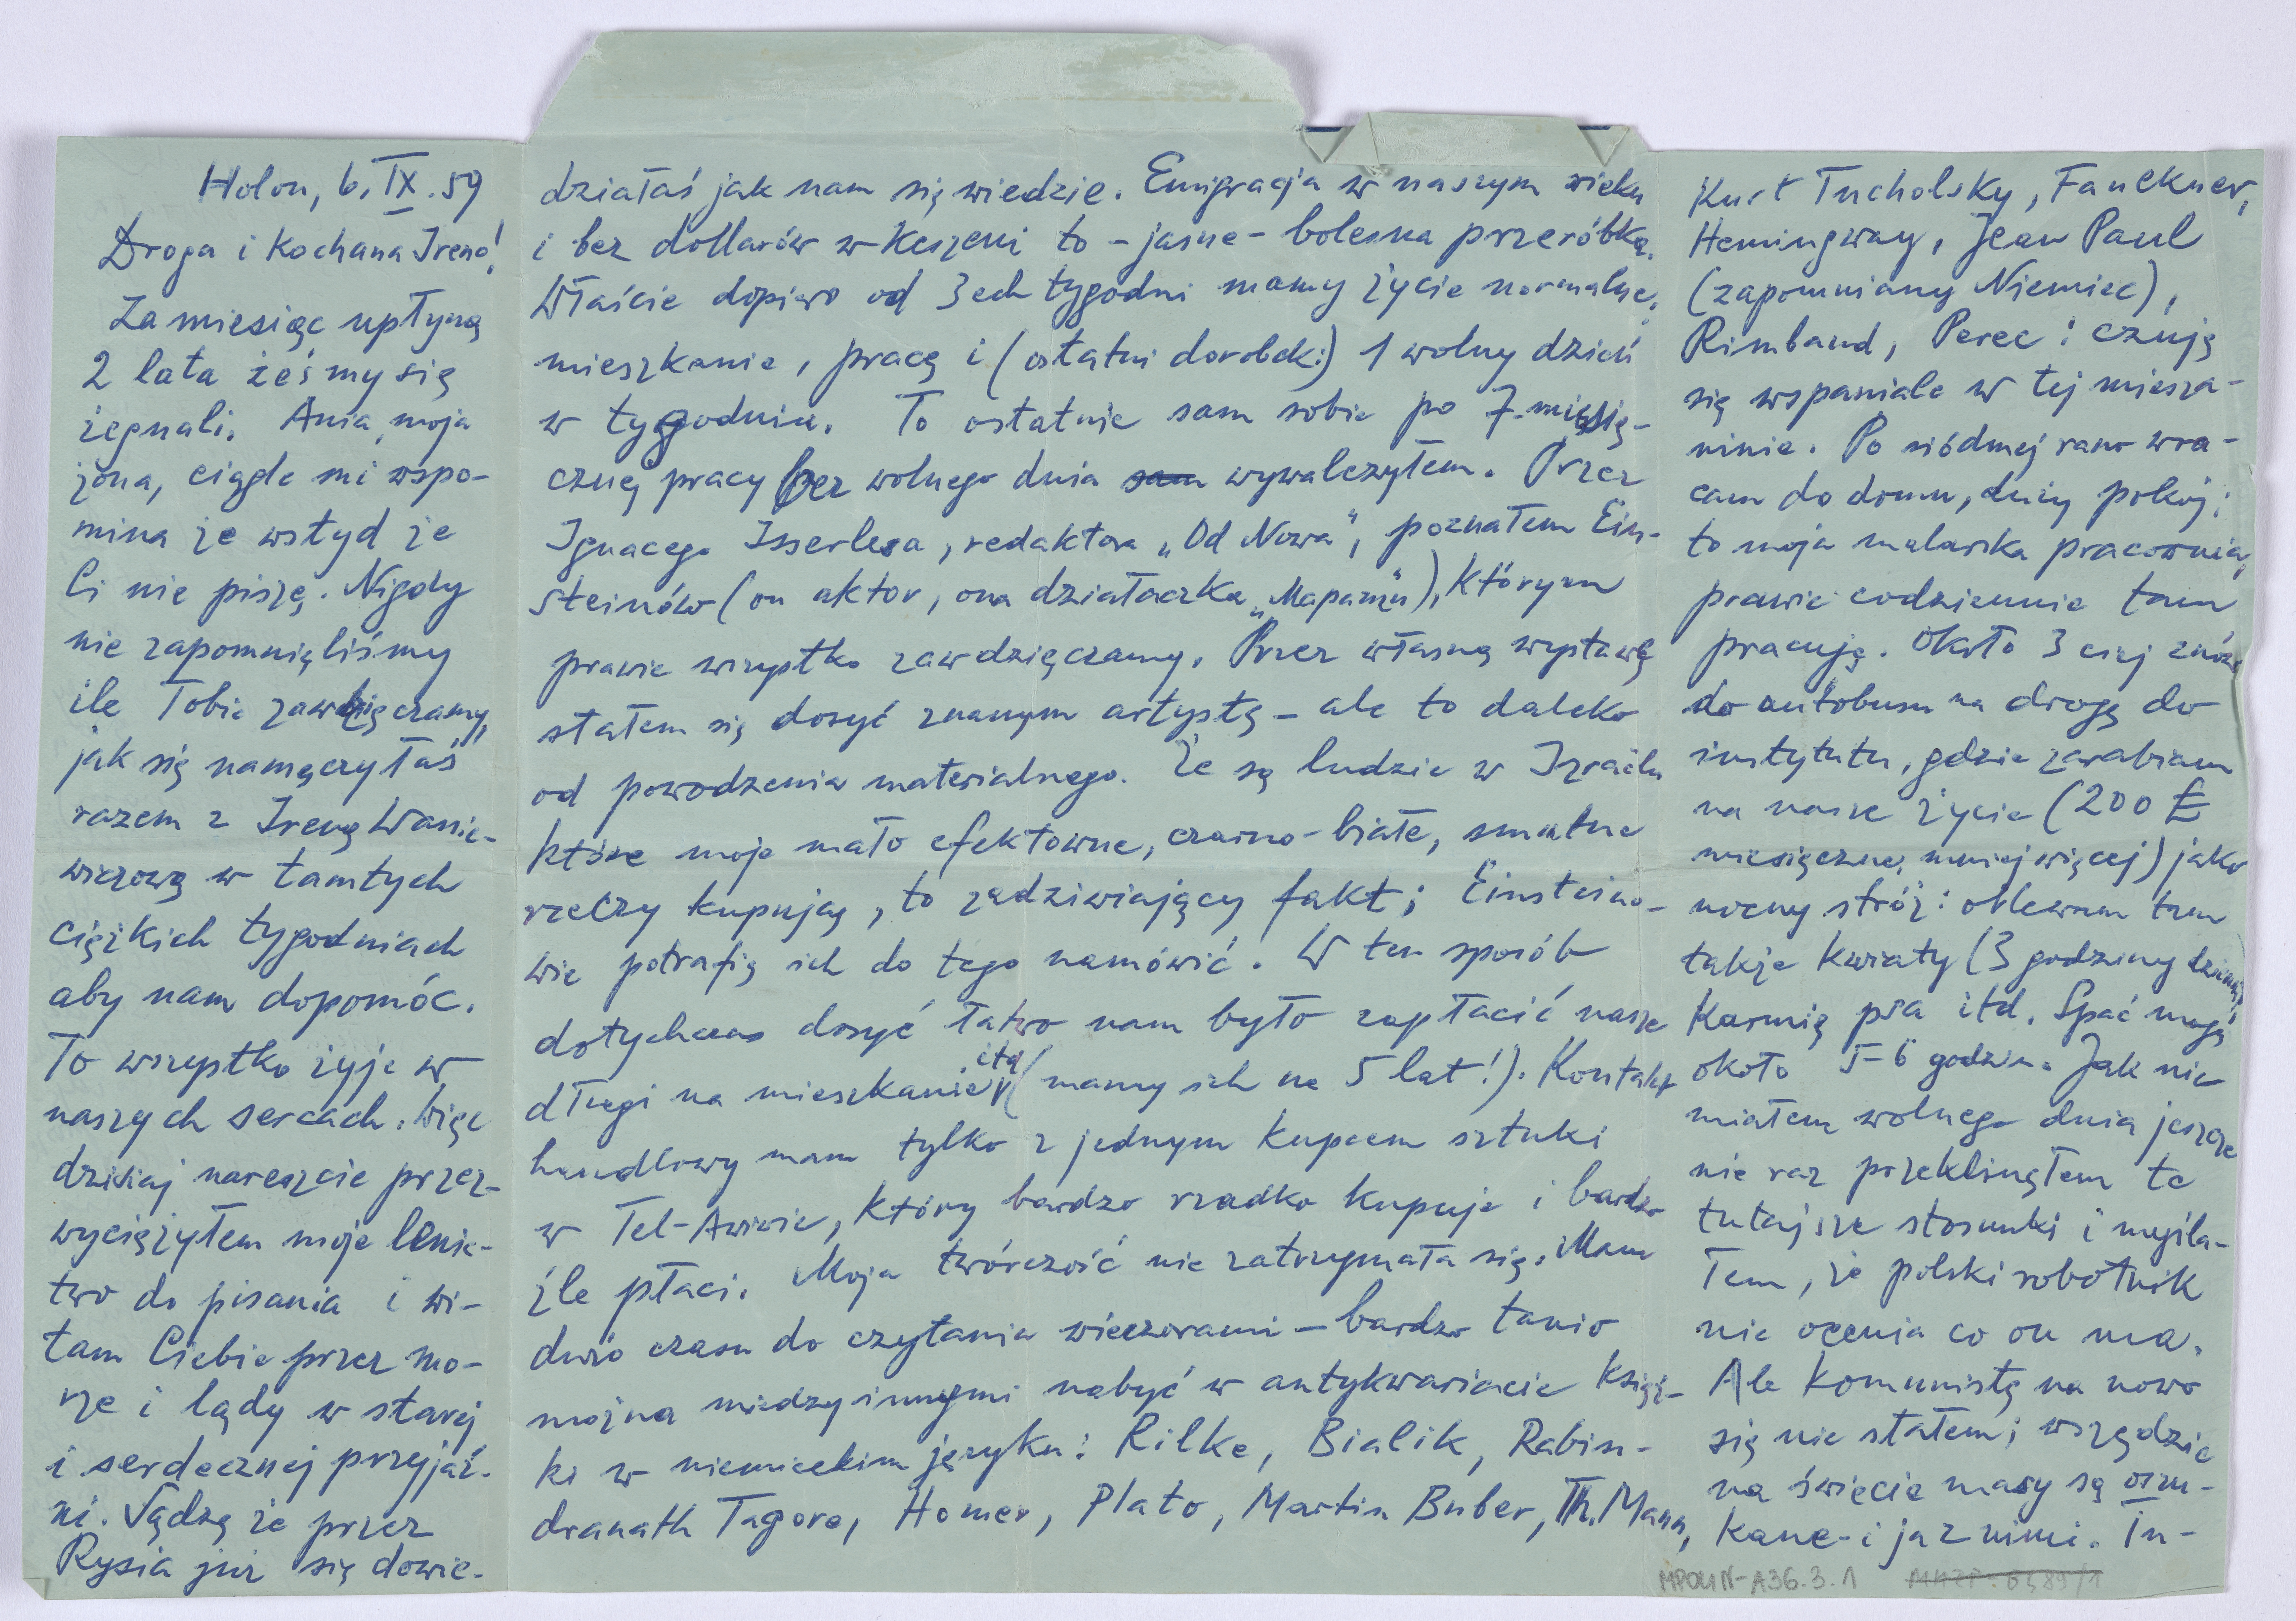 Holon, 6. IX. 59
Droga i Kochana Ireno!
Za miesiąc upłyną
2 lata żeśmy się
żegnali. Ania, moja
żona, ciągle mi wspo-
mina że wstyd że
Ci nie piszę. Nigdy
nie zapomnięliśmy
ile Tobie zawdzięczamy,
jak się namęczyłaś
razem z Ireną Wanie-
wiczową w tamtych
ciężkich tygodniach
aby nam dopomóc.
To wszystko żyje w
naszych sercach. Więc
dzisiaj nareszcie przez-
wyciężyłem moje lenis-
two do pisania i wi-
tam Ciebie przez mo-
rze i lądy w starej
i serdecznej przyjaź-
ni. Sądzę że przez
Rysia już się dowie-
działaś jak nam się wiedzie. Emigracja w naszym wieku
i bez dollarów w keszeni to - jasne - bolesna przeróbka.
Właście dopiero od 3ech tygodni mamy życie normalne,
mieszkanie, pracę i (ostatni dorobek:) 1 wolny dzień
w tygodniu. To ostatnie sam sobie po 7-miesię-
cznej pracy bez wolnego dnia sam wywalczyłem. Przez
Ignacego Isserlesa, redaktora „Od Nowa", poznałem Ein-
steinów (on aktor, ona działaczka „Mapamu"), którym
prawie wszystko zawdzięczamy. Przez własną wystawę
stałem się dosyć znanym artystą - ale to daleko
od powodzenia materialnego. Że są ludzie w Izraelu
które moje mało efektowne, czarno-białe, smutne
rzeczy kupują, to zadziwiający fakt; Einsteino-
wie potrafią ich do tego namówić. W ten sposób
dotychczas dosyć łatwo nam było zapłacić nasze
długi na mieszkanie itd (mamy ich na 5 lat!). Kontakt
handlowy mam tylko z jednym kupcem sztuki
w Tel-Awiwie, który bardzo rzadko kupuje i bardzo
źle płaci. Moja twórczość nie zatrzymała się. Mam
dużo czasu do czytania wieczorami - bardzo tanio
można miedzy innymi nabyć w antykwariacie książ-
ki w niemieckim języku: Rilke, Bialik, Rabin-
dranath Tagore, Homer, Plato, Martin Buber, Th. Mann,
Kurt Tucholsky, Faulkner,
Hemingway, Jean Paul
(zapomniany Niemiec),
Rimbaud, Perec i czuję
się wspaniale w tej miesza-
ninie. Po siódmej rano wra-
cam do domu, duży pokój:
to moja malarska pracownia,
prawie codziennie tam
pracuję. Około 3 ciej znów
do autobusu na drogę do
instytutu, gdzie zarabiam
na nasze życie (200 £
miesięcznej mniej więcej) jako
nocny stróż: oblewam tam
także kwiaty (3 godziny dziennie)
Karmię psa itd. Spać mogę
około 5-6 godzin. Jak nie
miałem wolnego dnia jeszcze
nie raz przeklinąłem te
tutejsze stosunki i myśla-
łem, że polski robotnik
nie ocenia co on ma.
Ale komunistą na nowo
się nie stałem; wszędzie
na świecie masy są oszu-
kane - i ja z nimi. In-
MPOLIN-A36.3.1